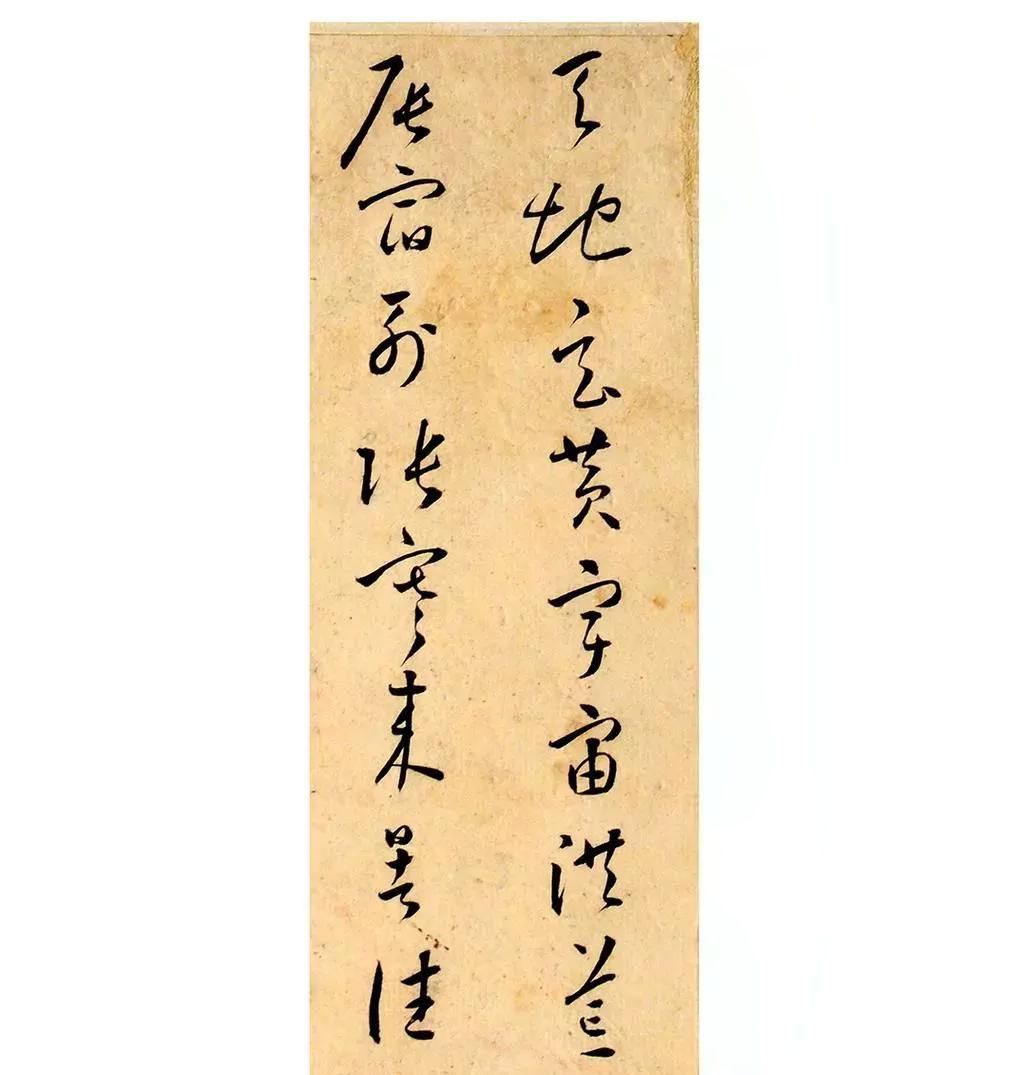 天地玄黄宇宙洪荒
辰宿列張寒来暑往